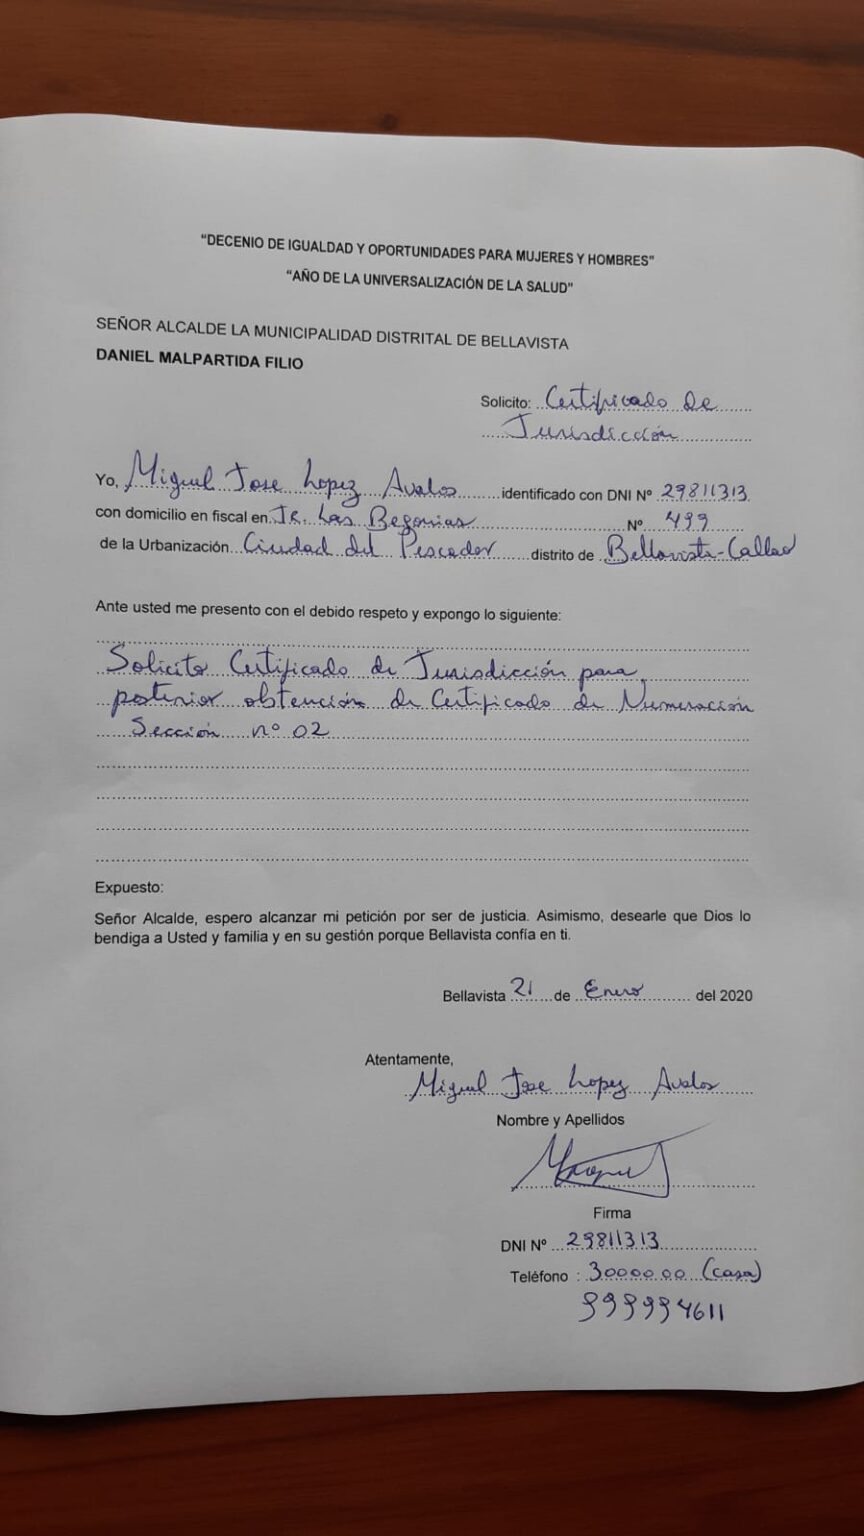 “DECENIO DE IGUALDAD Y OPORTUNIDADES PARA MUJERES Y HOMBRES”
“AÑO DE LA UNIVERSALIZACIÓN DE LA SALUD”
SEÑOR ALCALDE LA MUNICIPALIDAD DISTRITAL DE BELLAVISTA
DANIEL MALPARTIDA FILIO
Solicito: Certificado de
Jurisdicción
Yo, Miguel Jose Lopez Avalos identificado con DNI Nº 29811313
con domicilio en fiscal en Jr. Las Begonias Nº 499
de la Urbanización Ciudad del Pescador distrito de Bellavista-Callao
Ante usted me presento con el debido respeto y expongo lo siguiente:
Solicito Certificado de Jurisdicción para
posterior obtención de Certificado de Numeración
Sección nº 02
Expuesto:
Señor Alcalde, espero alcanzar mi petición por ser de justicia. Asimismo, desearle que Dios lo
bendiga a Usted y familia y en su gestión porque Bellavista confía en ti.
Bellavista 21 de Enero del 2020
Atentamente,
Miguel Jose Lopez Avalos
Nombre y Apellidos
Firma
DNI Nº 29811313
Teléfono : 3000000 (casa)
999994611